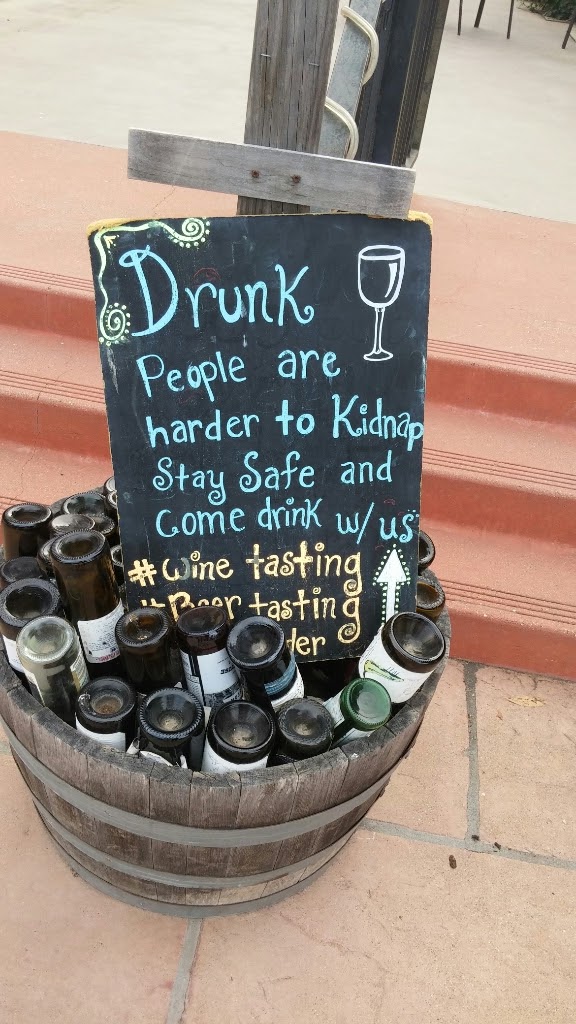 Drunk
People are
harder to Kidnap
Stay Safe and
Come drink w/us
#wine tasting
#Beer tasting